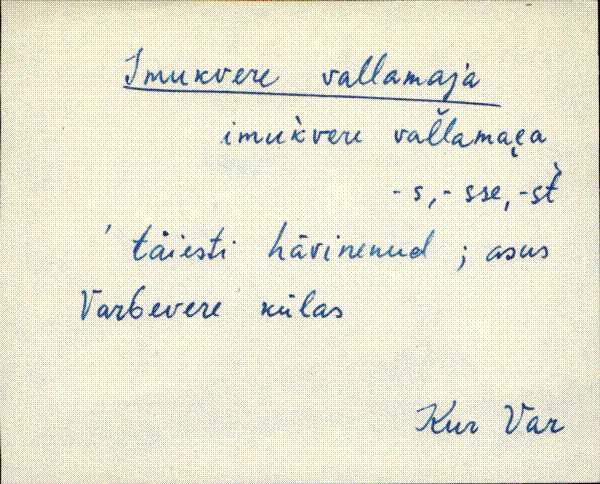 Imukvere vallamaja
imuk̀vere val̆lamai̯a
-s, -sse, -st̀
' täiesti hävinenud ; asus
Varbevere külas
Kur Var